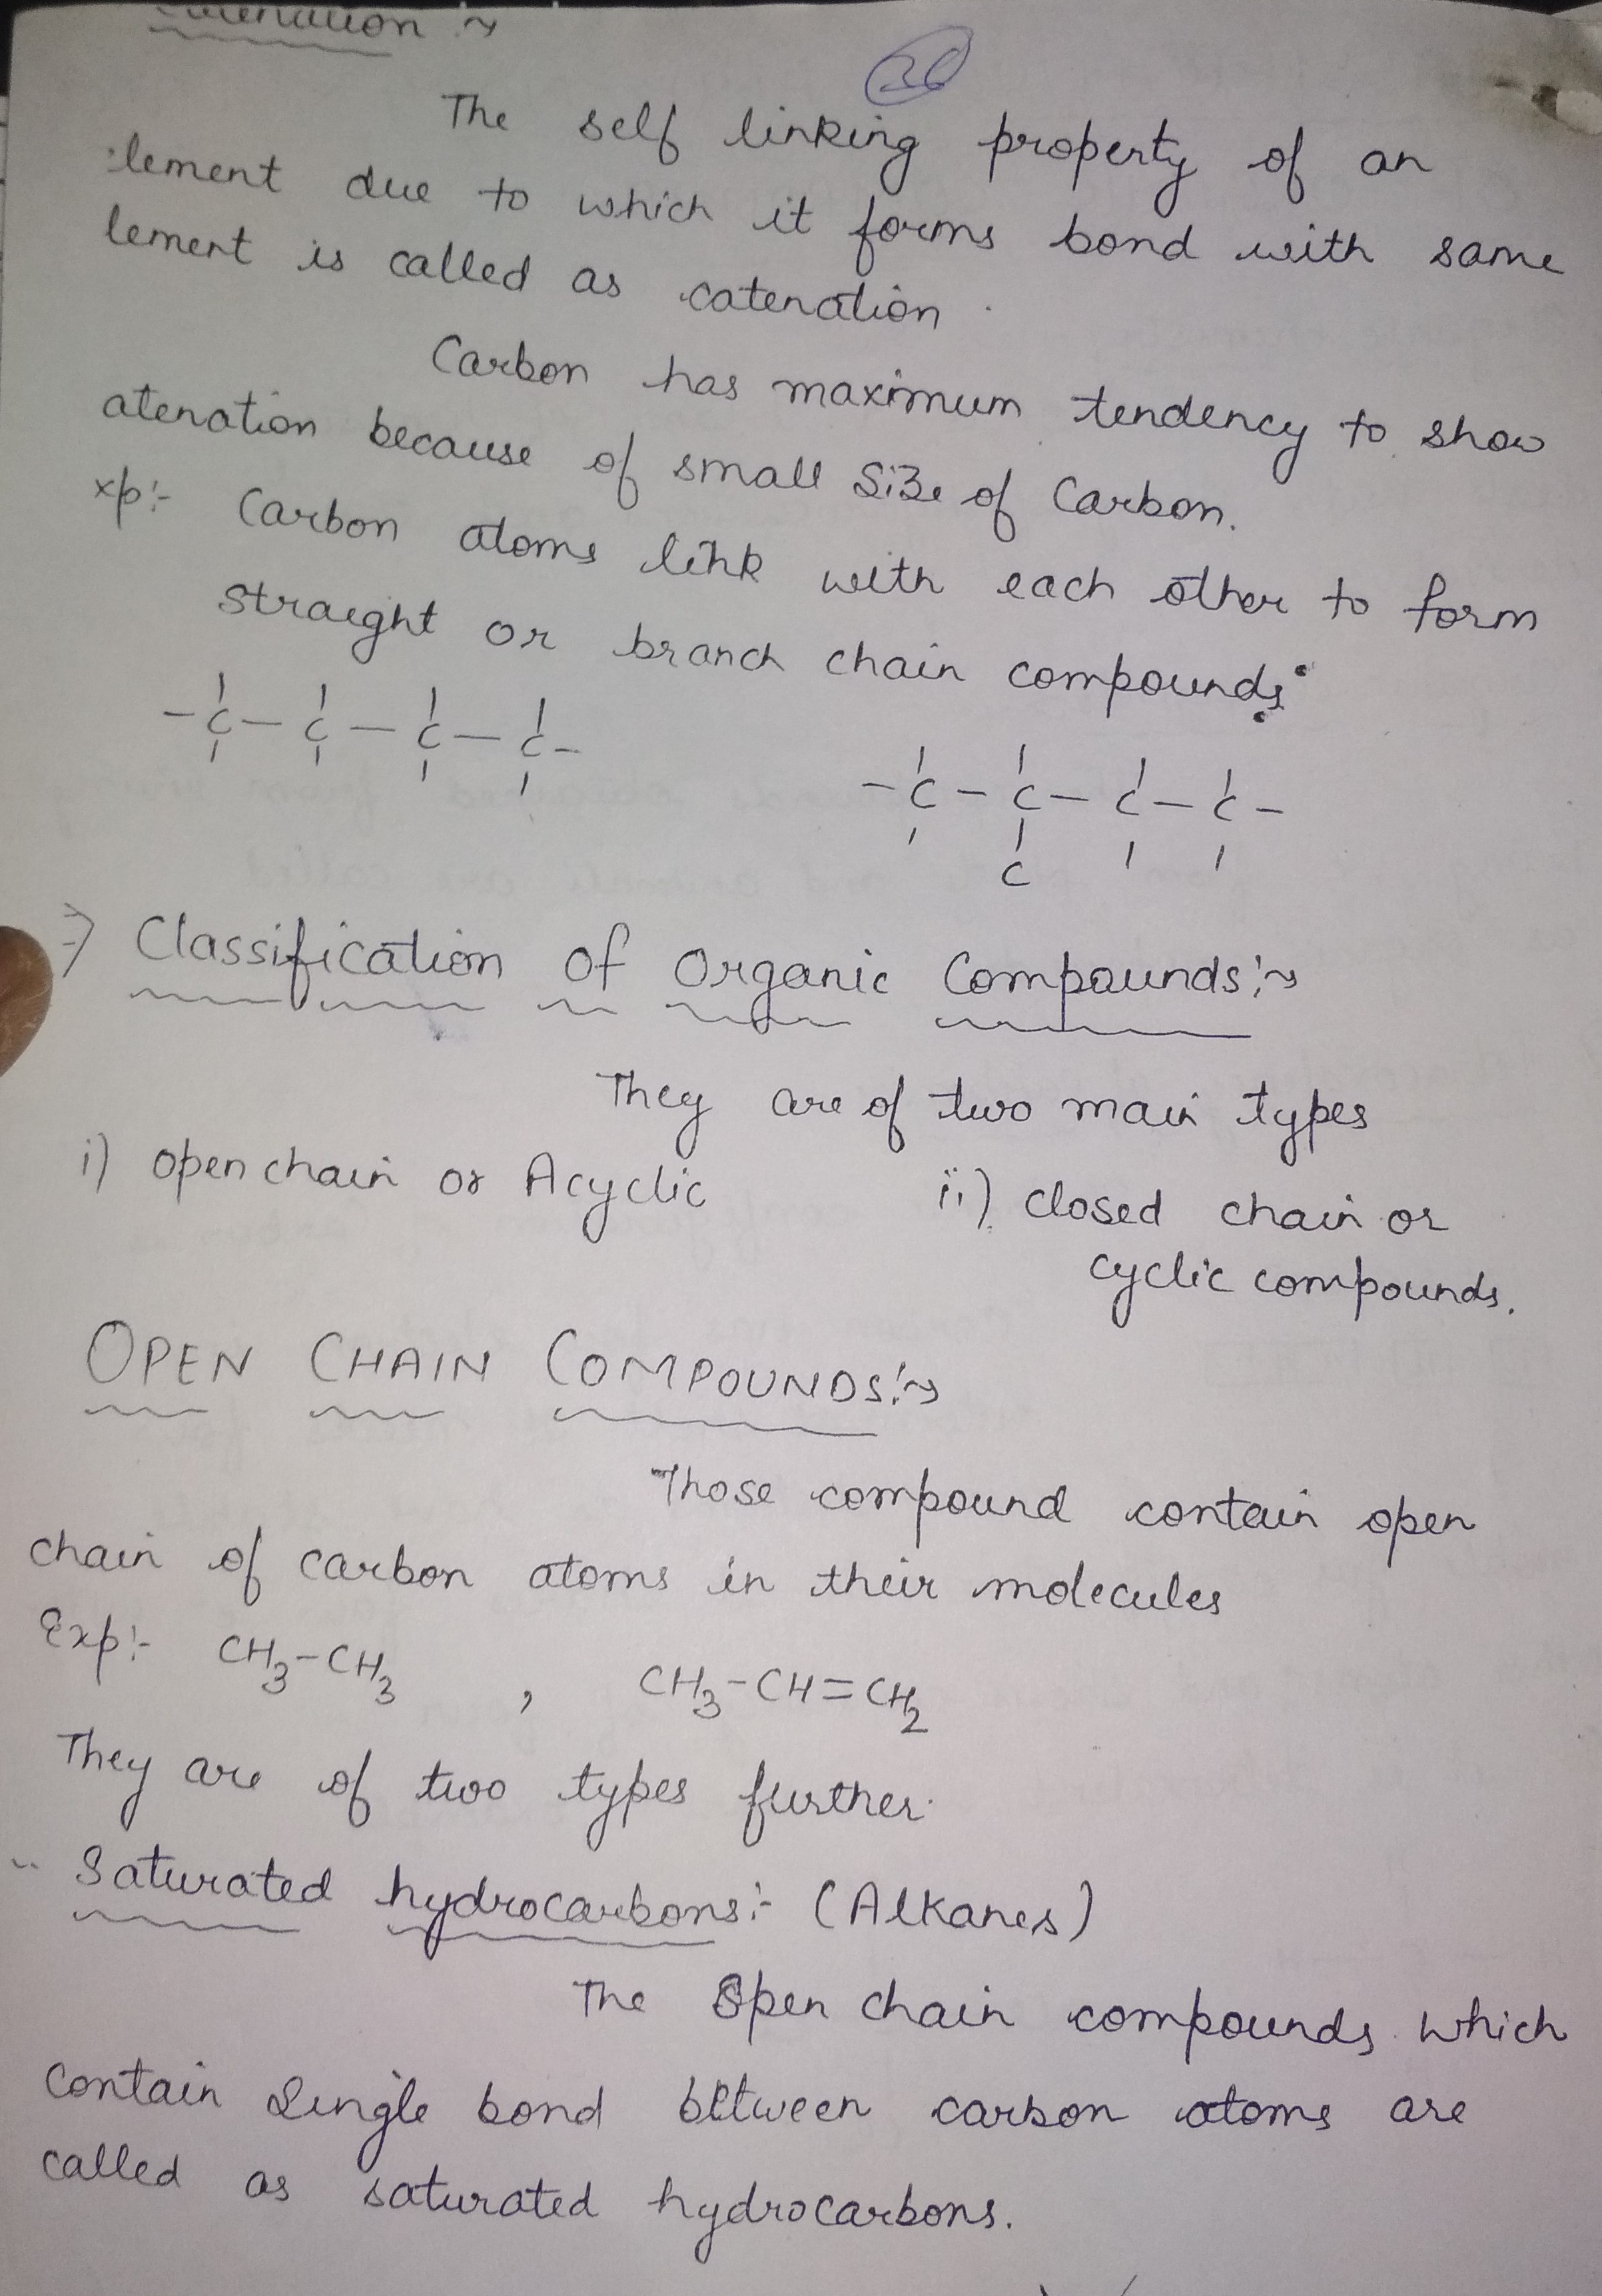 The self linking property of an
lement due to which it forms bond with same
lement is called as catenation.
Carbon has maximum tendency to show
atenation because of small Size of Carbon.
xp:- Carbon atoms link with each other to form
straight or branch chain compounds
- C - C - C - C -
- C - C - C - C -
C
=> Classification of Organic Compounds:~
They are of two main types
i) open chain or Acyclic
ii) closed chain or
cyclic compounds.
OPEN CHAIN COMPOUNDS:~
Those compound contain open
chain of carbon atoms in their molecules
Exp:- CH3-CH3 , CH3-CH=CH2
They are of two types further.
Saturated hydrocarbons:- (Alkanes)
The Open chain compounds which
contain single bond between carbon atoms are
called as saturated hydrocarbons.